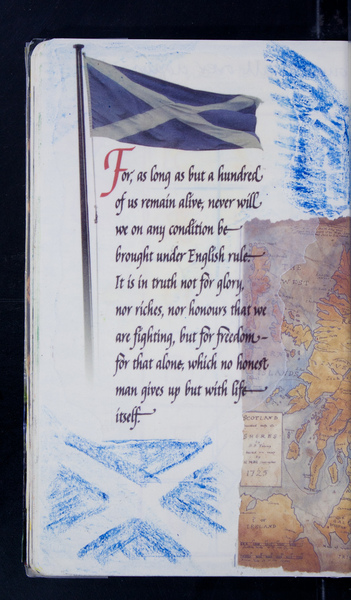 For, as long as but a hundred
of us remain alive, never will
we on any condition be
brought under English rule.
It is in truth not for glory,
nor riches, nor honours that we
are fighting, but for freedom -
for that alone, which no honest
man gives up but with life
itself.
SCOTLAND
SHIRES
1725